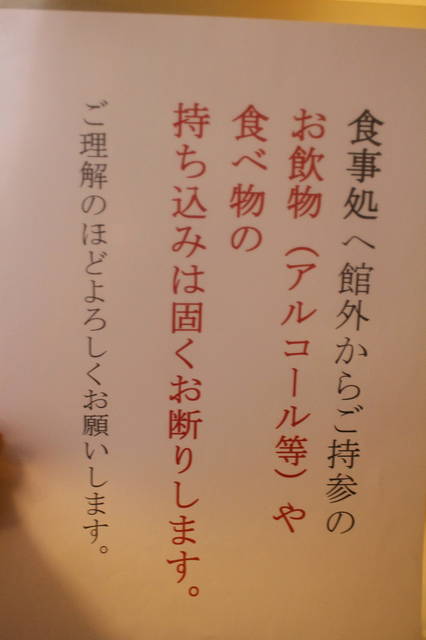 食事処へ館外からご持参の
お飲物（アルコール等）や
食べ物の
持ち込みは固くお断りします。
ご理解のほどよろしくお願いします。